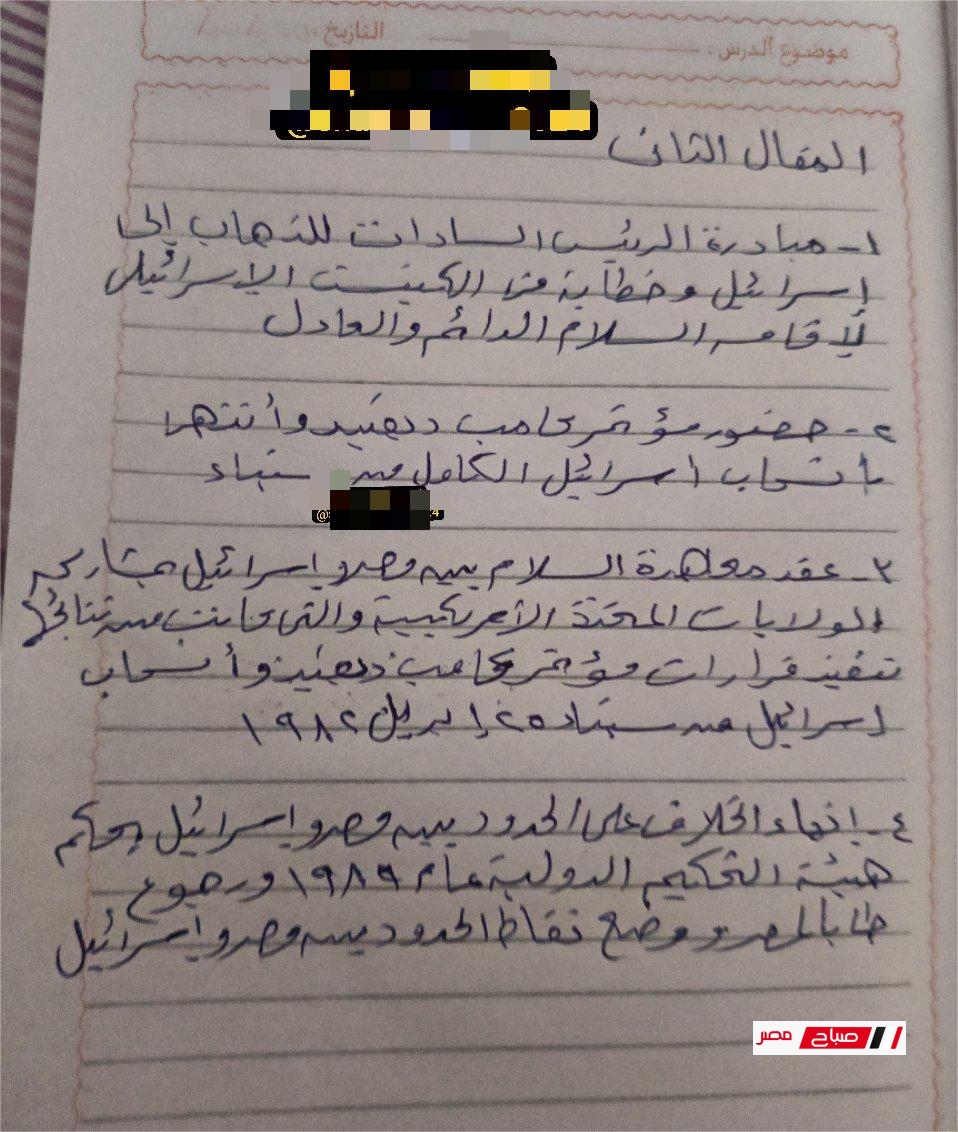 موضوع الدرس : التاريخ : / /
المقال الثانى
١- مبادرة الرئيس السادات للذهاب إلى
إسرائيل وخطابة فى الكنيست الإسرائيلى
لإقامه السلام الدائم والعادل
٢- حضور مؤتمر كامب ديفيد وأنتهى
بانسحاب اسرائيل الكامل من سيناء
٣- عقد معاهدة السلام بين مصر وإسرائيل بمشاركه
الولايات المتحدة الأمريكيية والتى كانت من نتائجها
تنفيذ قرارات مؤتمر كامب ديفيد وأنسحاب
اسرائيل من سيناء ٢٥ إبريل ١٩٨٢
٤- إنهاء الخلاف على الحدود بين مصر وإسرائيل بحكم
هيئة التحكيم الدولية عام ١٩٨٩ ورجوع
طابا لمصر ووضع نقاط الحدود بين مصر وإسرائيل
صباح مصر